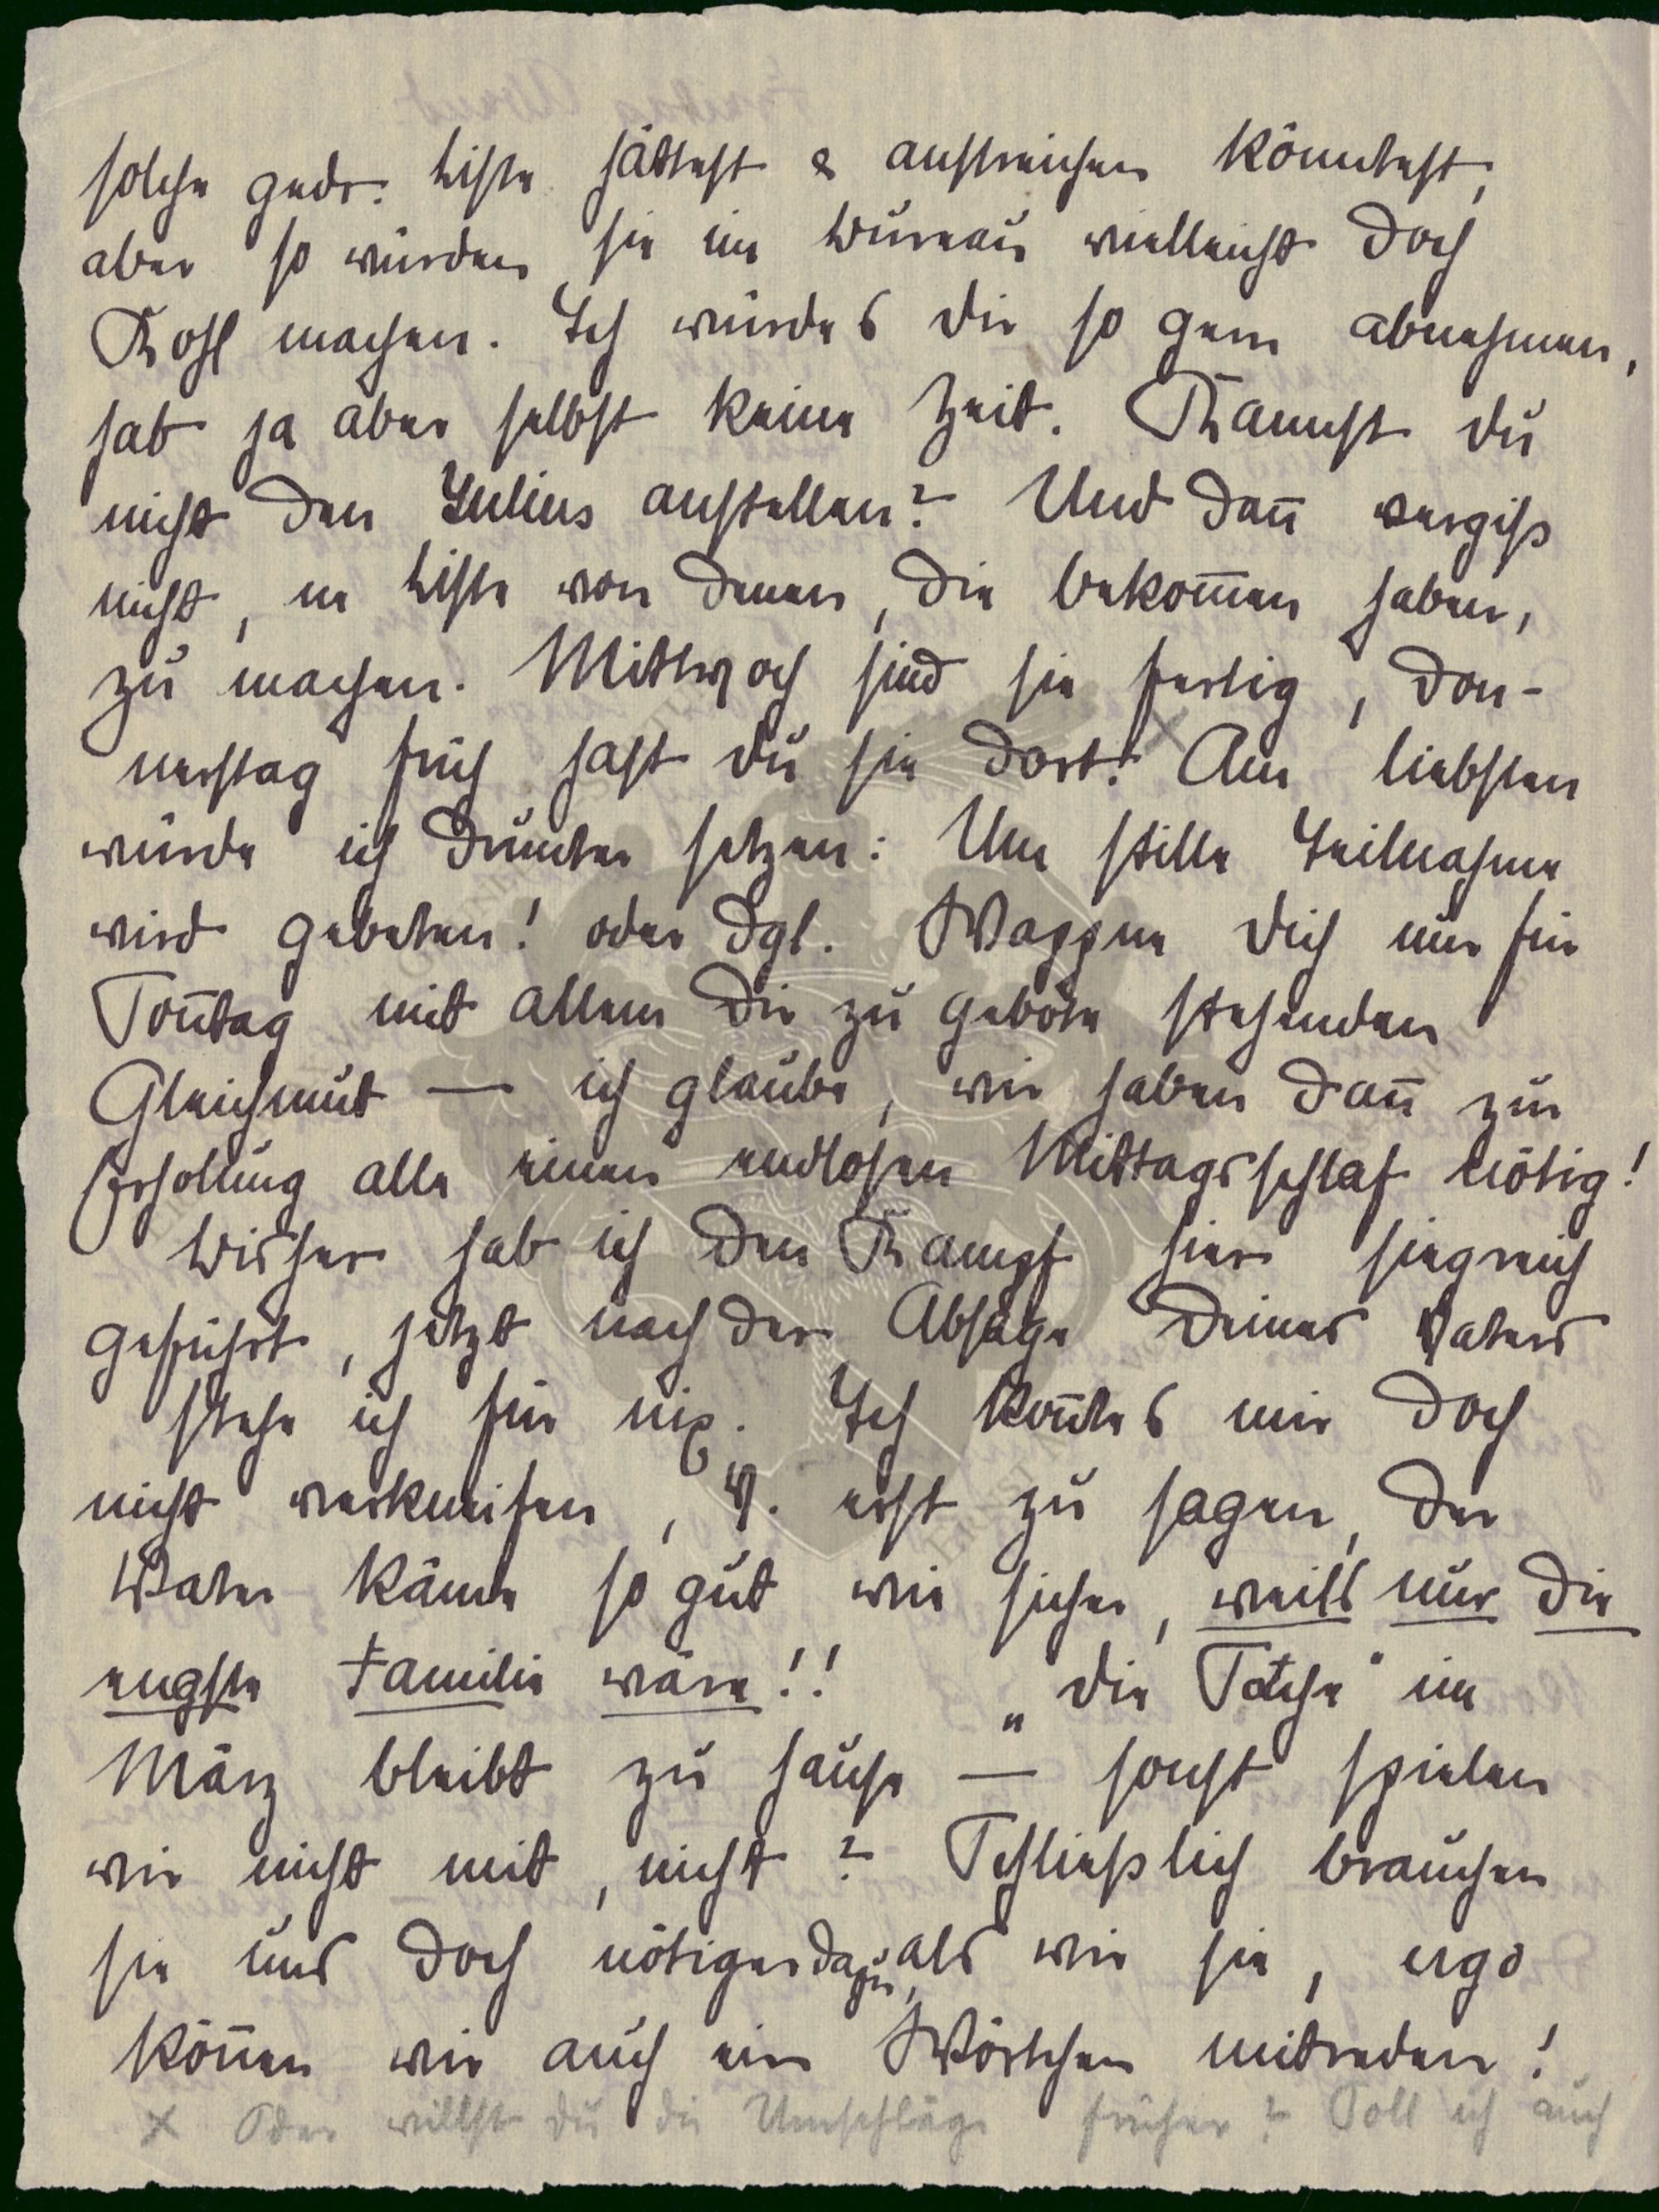 solche gedr. Liste hättest & ausstreichen könntest,
aber so würden sie im Bureau vielleicht doch
Kohl machen. Ich würde's dir so gern abnehmen,
hab ja aber selbst keine Zeit. Kannst du
nicht den Julius anstellen? Und dan̄ vergiss
nicht, ne Liste von denen, die bekom̄en haben,
zu machen. Mittwoch sind sie fertig, Don-
nerstag früh hast du sie dort! × Am liebsten
würde ich drunter setzen: Um stille Teilnahme
wird gebeten! oder dgl. Wappne dich nur für
Son̄tag mit allem dir zu gebote stehenden
Gleichmut — ich glaube, wir haben dan̄ zur
Erholung alle einen endlosen Mittagsschlaf nötig!
Bisher hab ich den Kampf hier siegreich
geführt, jetzt nach der Absage Deines Vaters
stehe ich für nix. Ich kon̄te's mir doch
nicht verkneifen, V. erst zu sagen, der
Vater käme so gut wie sicher, weils nur die
engste Familie wäre!! „die Tatsche" im
März bleibt zu hause — sonst spielen
wir nicht mit, nicht? Schliesslich brauchen
sie uns doch nötiger dazu, als wir sie, ergo
kön̄en wir auch ein Wörtchen mitreden!
× Oder willst du die Umschläge früher? Soll ich auch